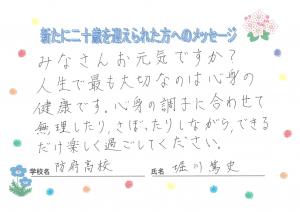 新たに二十歳を迎えられた方へのメッセージ
みなさんお元気ですか?
人生で最も大切なのは心身の
健康です。心身の調子に合わせて
無理したり、さぼったりしながら、できる
だけ楽しく過ごしてください。
学校名 防府高校 氏名 堀川篤史